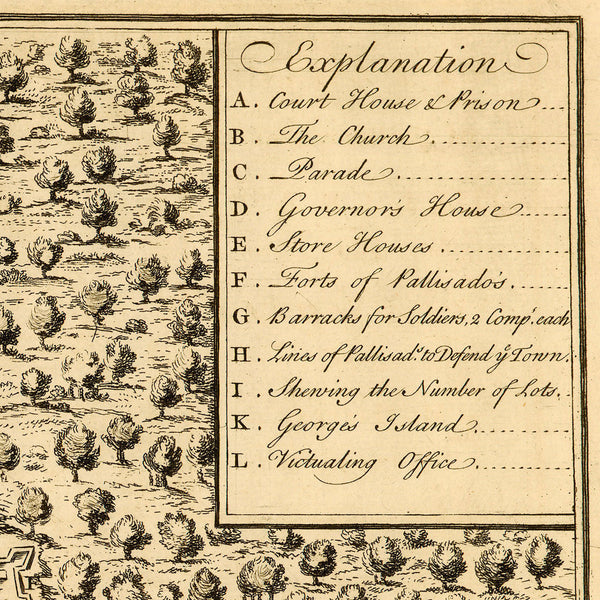 Explanation
A. Court House & Prison ...
B. The Church .............
C. Parade .................
D. Governor's House ......
E. Store Houses ...........
F. Forts of Pallisado's. .......
G. Barracks for Soldiers, 2 Comp.s each
H. Lines of Pallisad.s to Defend y.e Town.
I. Shewing the Number of Lots. ..
K. George's Island .............
L. Victualing Office .............
F